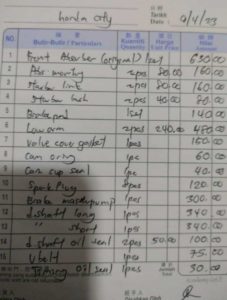 honda city
日期
Tarikh 9/4/23
摘要 數量 價格 銀額
Butir-Butir / Particulars Kuantiti Quantity Harga Unit Price Jumlah
1 Front Absorber (original) 1set 630.00
2 Abs mounting 2pcs 80.00 160.00
3 link 2pcs 80.00 160.00
4 bush 2pcs 40.00 80.00
5 Brake pad 1set 140.00
6 Low arm 2pcs 240.00 480.00
7 Valve cover gasket 1pcs 160.00
8 Cam oring 1pc 60.00
9 Cam cup seal 1pc 40.00
10 Spark Plug 4pcs 120.00
11 Brake master pump 1pc 300.00
12 d.shaft long 1pc 340.00
13 " short 1pc 340.00
14 d.shaft oil seal 2pcs 50.00 100.00
15 V belt 1pc 75.00
Timing oil seal 1pc 30.00